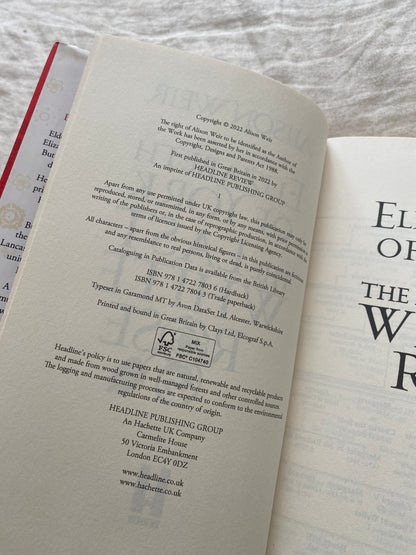 Copyright © 2022 Alison Weir
The right of Alison Weir to be identified as the Author of
the Work has been asserted by her in accordance with the
Copyright, Designs and Patents Act 1988.
First published in Great Britain in 2022 by
HEADLINE REVIEW
An imprint of HEADLINE PUBLISHING GROUP
1
Apart from any use permitted under UK copyright law, this publication may only be
reproduced, stored, or transmitted, in any form, or by any means, with prior permission in
writing of the publishers or, in the case of reprographic production, in accordance with the
terms of licences issued by the Copyright Licensing Agency.
All characters – apart from the obvious historical figures – in this publication are fictitious
and any resemblance to real persons, living or dead, is purely coincidental.
Cataloguing in Publication Data is available from the British Library
ISBN 978 1 4722 7803 6 (Hardback)
ISBN 978 1 4722 7804 3 (Trade paperback)
Typeset in Garamond MT by Avon DataSet Ltd, Alcester, Warwickshire
Printed and bound in Great Britain by Clays Ltd, Elcograf S.p.A.
FSC
MIX
Paper from
responsible sources
FSC® C104740
Headline's policy is to use papers that are natural, renewable and recyclable products
and made from wood grown in well-managed forests and other controlled sources.
The logging and manufacturing processes are expected to conform to the environmental
regulations of the country of origin.
HEADLINE PUBLISHING GROUP
An Hachette UK Company
Carmelite House
50 Victoria Embankment
London EC4Y 0DZ
www.headline.co.uk
www.hachette.co.uk
EL
OF
THE
W
R